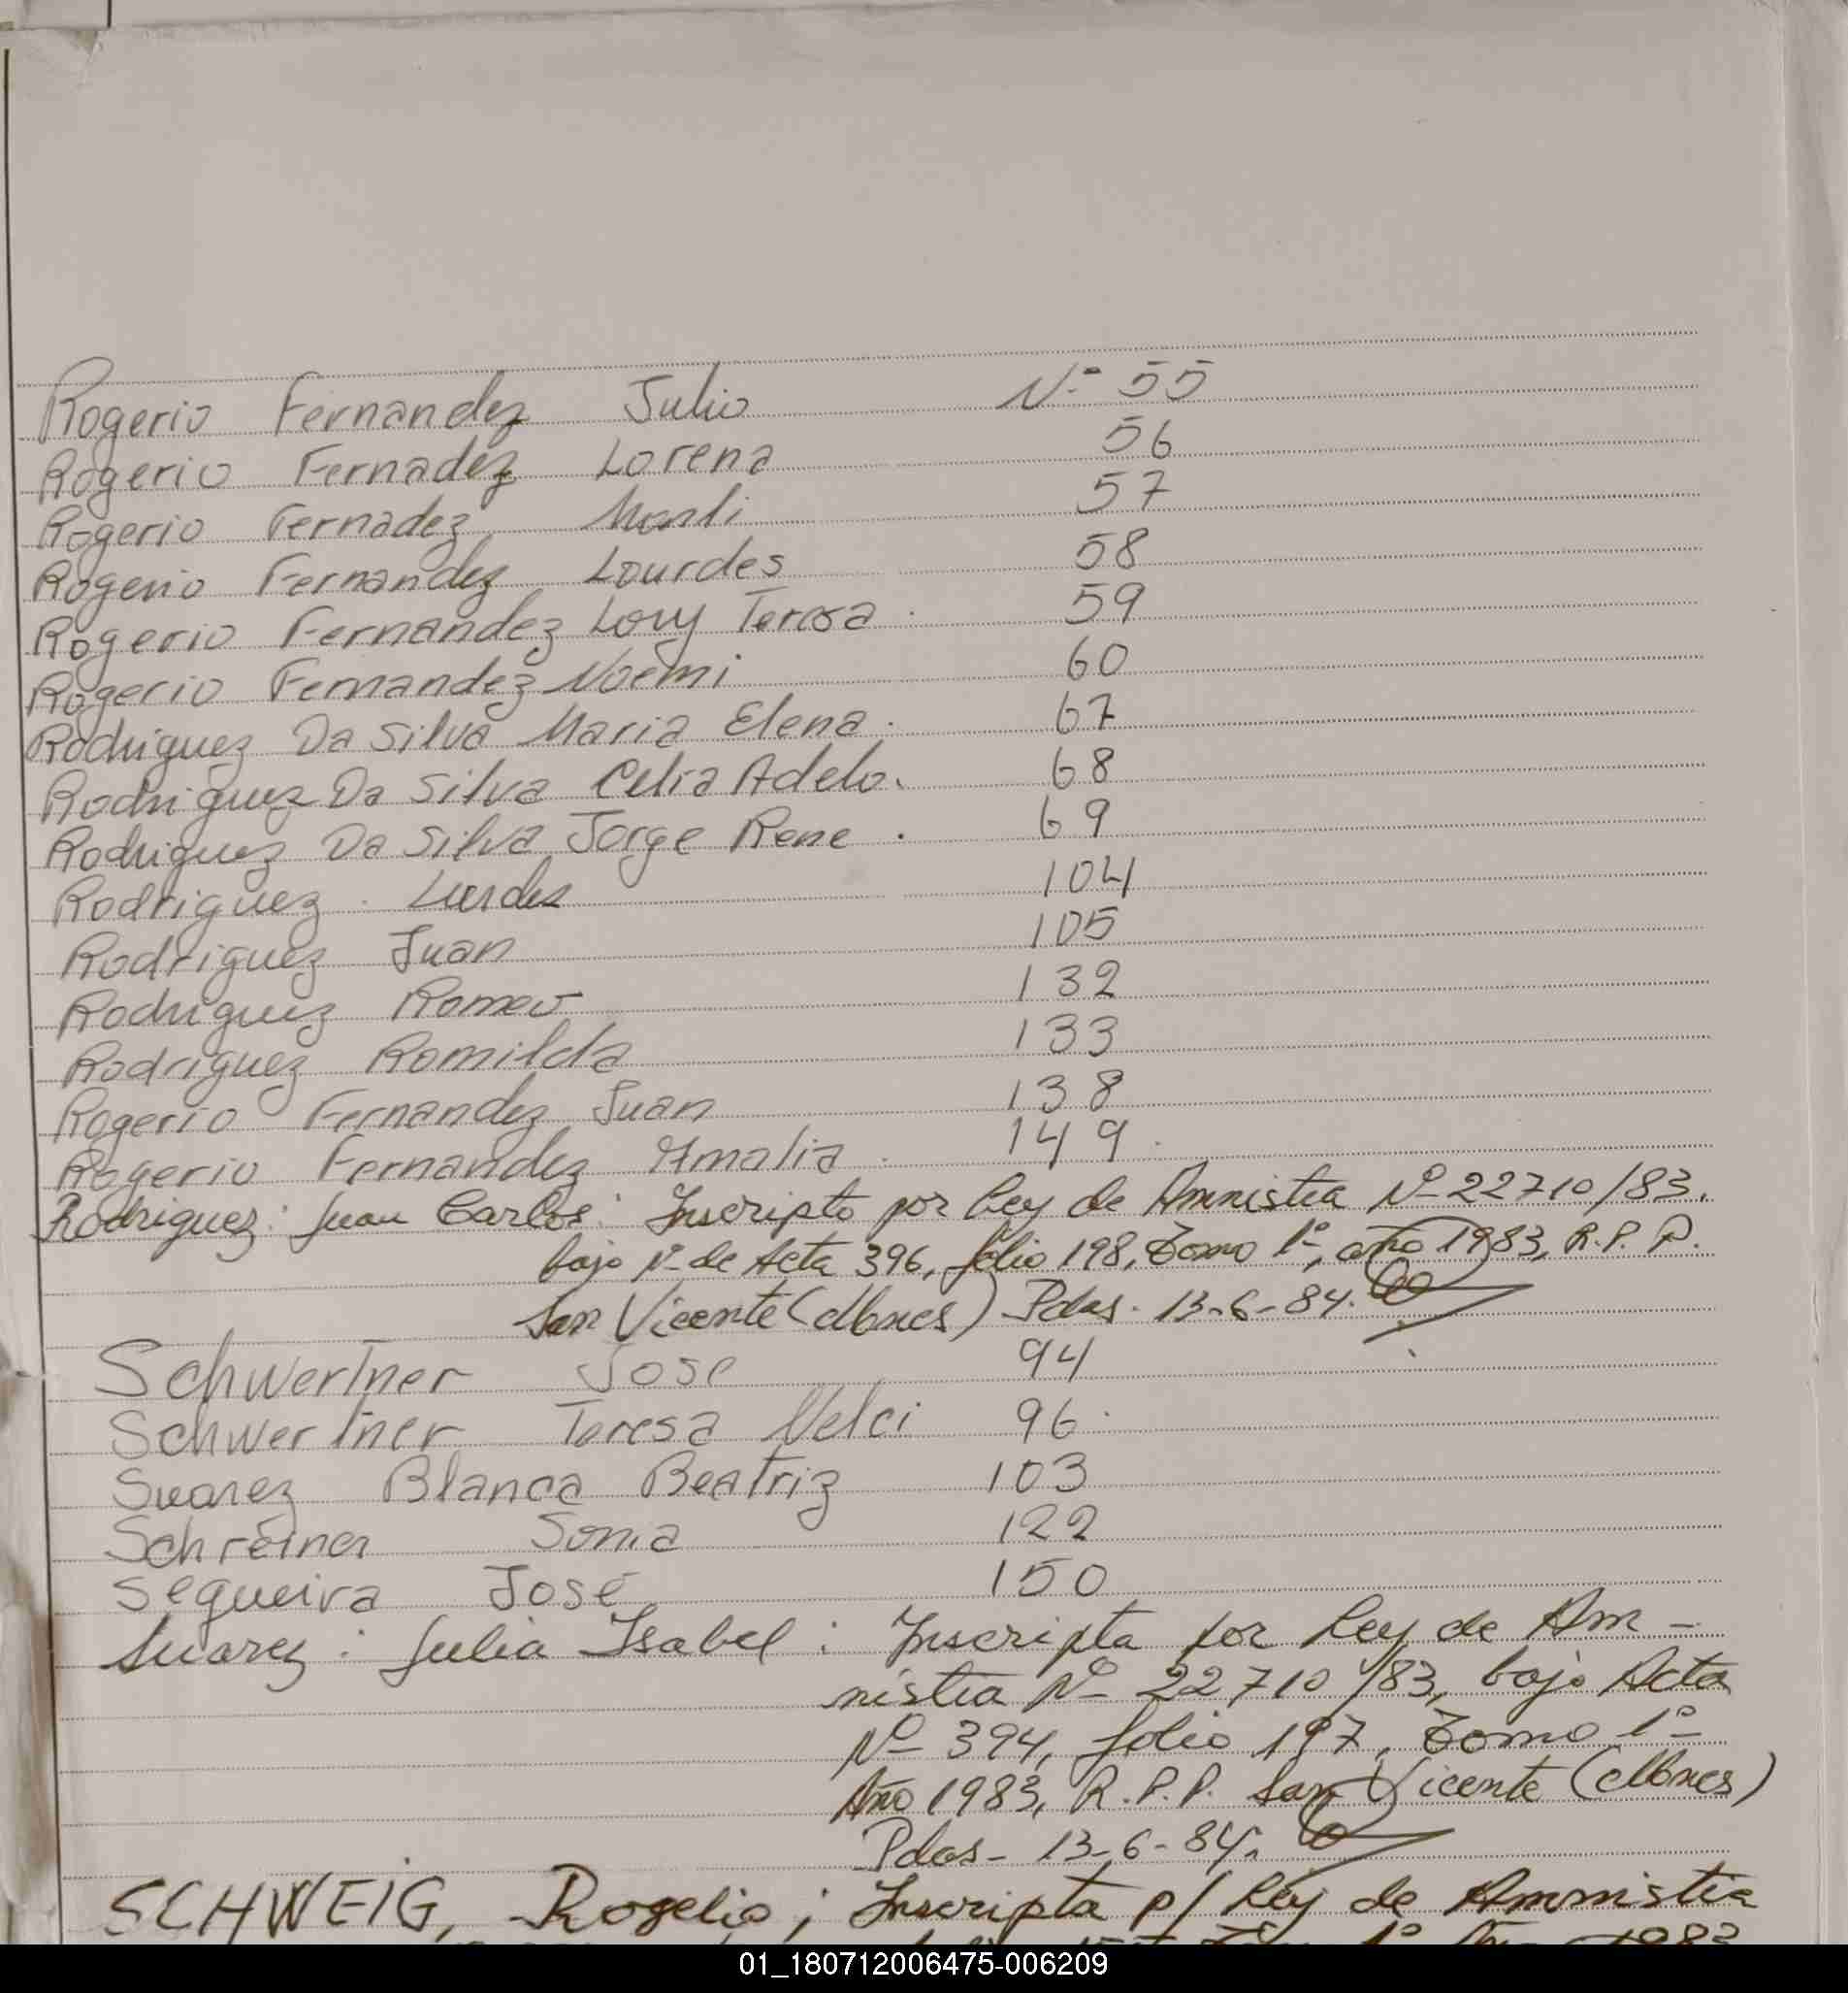 Rogerio Fernandez Julio Nº 55
Rogerio Fernadez Lorena 56
Rogerio Fernadez Marli 57
Rogerio Fernandez Lourdes 58
Rogerio Fernandez Lory Teresa 59
Rogerio Fernandez Noemi 60
Rodriguez Da Silva Maria Elena. 67
Rodriguez Da Silva Celia Adela. 68
Rodriguez Da Silva Jorge Rene. 69
Rodriguez Lurdes 104
Rodriguez Juan 105
Rodriguez Romeo 132
Rodriguez Romilda 133
Rogerio Fernandez Juan 138
Rogerio Fernandez Amalia. 149.
Rodriguez: Juan Carlos: Inscripto por Ley de Amnistia Nº 22710/83.
bajo Nº de Acta 396, folio 198, Tomo 1º, año 1983, R.P.P.
San Vicente (Mbnes) Pdas. 13-6-84.
Schwertner Jose 94
Schwertner Teresa Nelci 96.
Suarez Blanca Beatriz 103
Schreiner Sonia 122
Sequeira José 150
Suarez: Julia Isabel: Inscripta por Ley de Am-
nistia Nº 22710/83, bajo Acta
Nº 394, folio 197, Tomo 1º
Año 1983, R.P.P. San Vicente (Mbnes)
Pdas- 13-6-84.
SCHWEIG, Rogelio; Inscripta p/ Ley de Amnistia
1º 1983
01_180712006475-006209